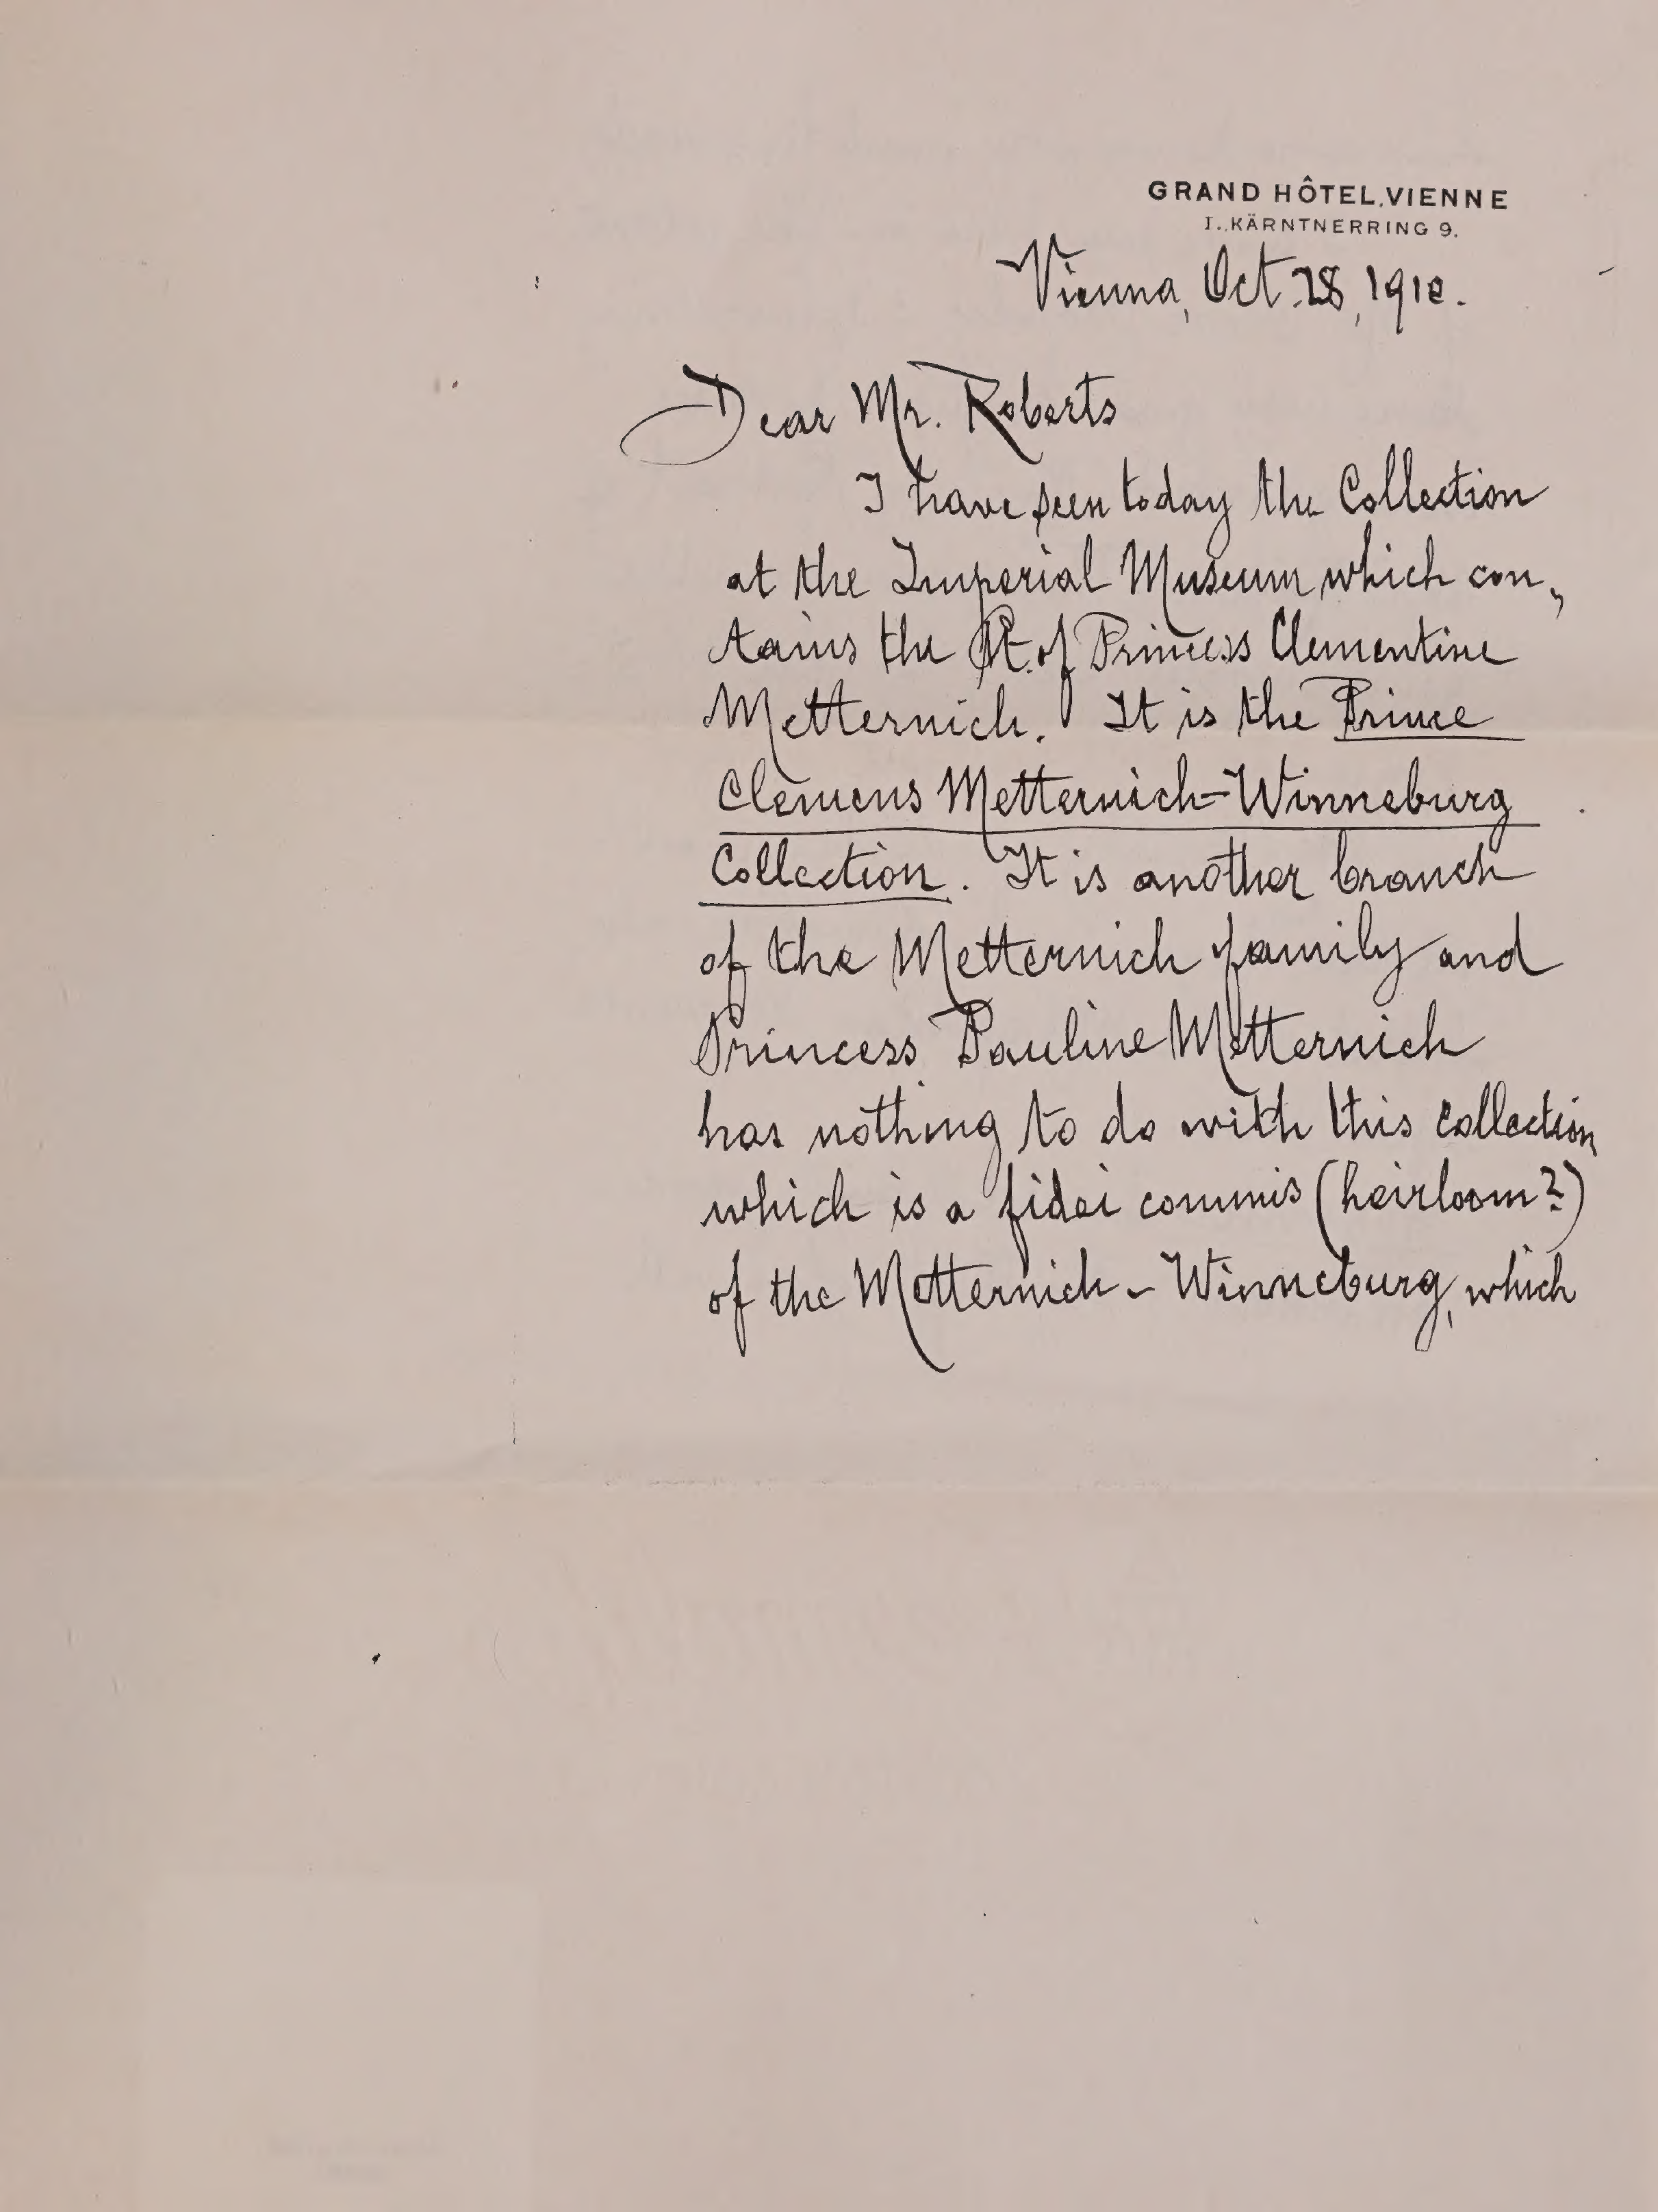 GRAND HÔTEL. VIENNE
I., KÄRNTNERRING 9.
Vienna, Oct. 28, 1910.
Dear Mr. Roberts
I have seen today the Collection
at the Imperial Museum which con-
tains the Pt. of Princess Clementine
Metternich. It is the Prince
Clemens Metternich-Winneburg
Collection. It is another branch
of the Metternich family and
Princess Pauline Metternich
has nothing to do with this collection
which is a fidei commis (heirloom?)
of the Metternich-Winneburg, which